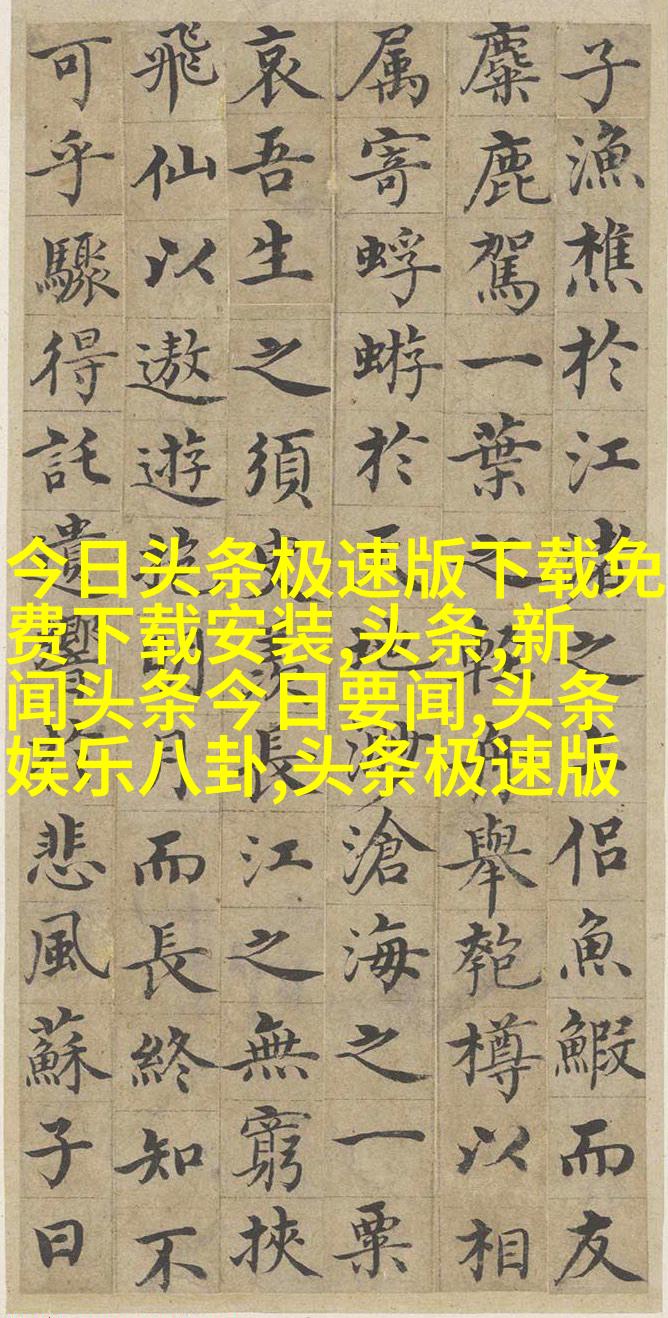 子漁樵於江渚之上侶魚鰕而友
麋鹿駕一葉之舟舉匏樽以相
属寄蜉蝣於天地渺滄海之一粟
哀吾生之須臾羨長江之無窮挾
飛仙以遨遊抱明月而長終知不
可乎驟得託遺響於悲風蘇子曰
今日头条极速版下载免
费下载安装,头条,新
闻头条今日要闻,头条
娱乐八卦,头条极速版